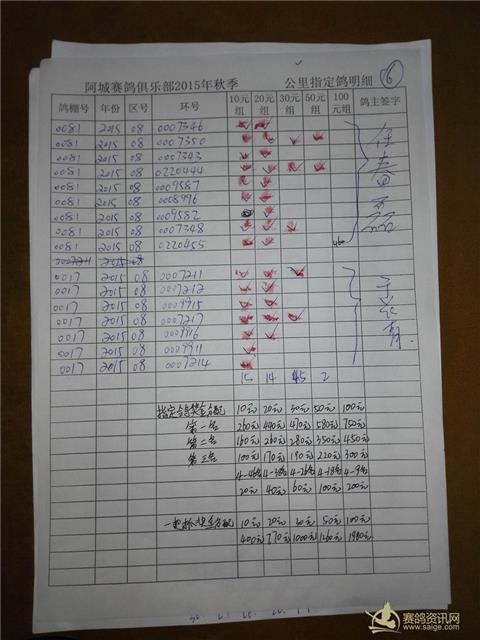 阿城赛鸽俱乐部2015年秋季 公里指定鸽明细 6
鸽棚号 年份 区号 环号 10元组 20元组 30元组 50元组 100元组 鸽主签字
0081 2015 08 0007346
0081 2015 08 0007350
0081 2015 08 0007343
0081 2015 08 0220444
0081 2015 08 0009587
0081 2015 08 0008996
0081 2015 08 0009582
0081 2015 08 0007348
0081 2015 08 0220455
0017 2015 08 0007211
0017 2015 08 0007212
0017 2015 08 0009915
0017 2015 08 0007217
0017 2015 08 0009916
0017 2015 08 0009911
0017 2015 08 0007214
15 14 5 2
指定鸽奖金分配 10元 20元 30元 50元 100元
第一名 260元 440元 470元 580元 750元
第二名 160元 260元 280元 350元 450元
第三名 100元 170元 190元 220元 300元
20元 40元 60元 100元 200元
10元 20元 30元 50元 100元
400元 770元 1000元 1260元
赛鸽资讯网
www.saige.com